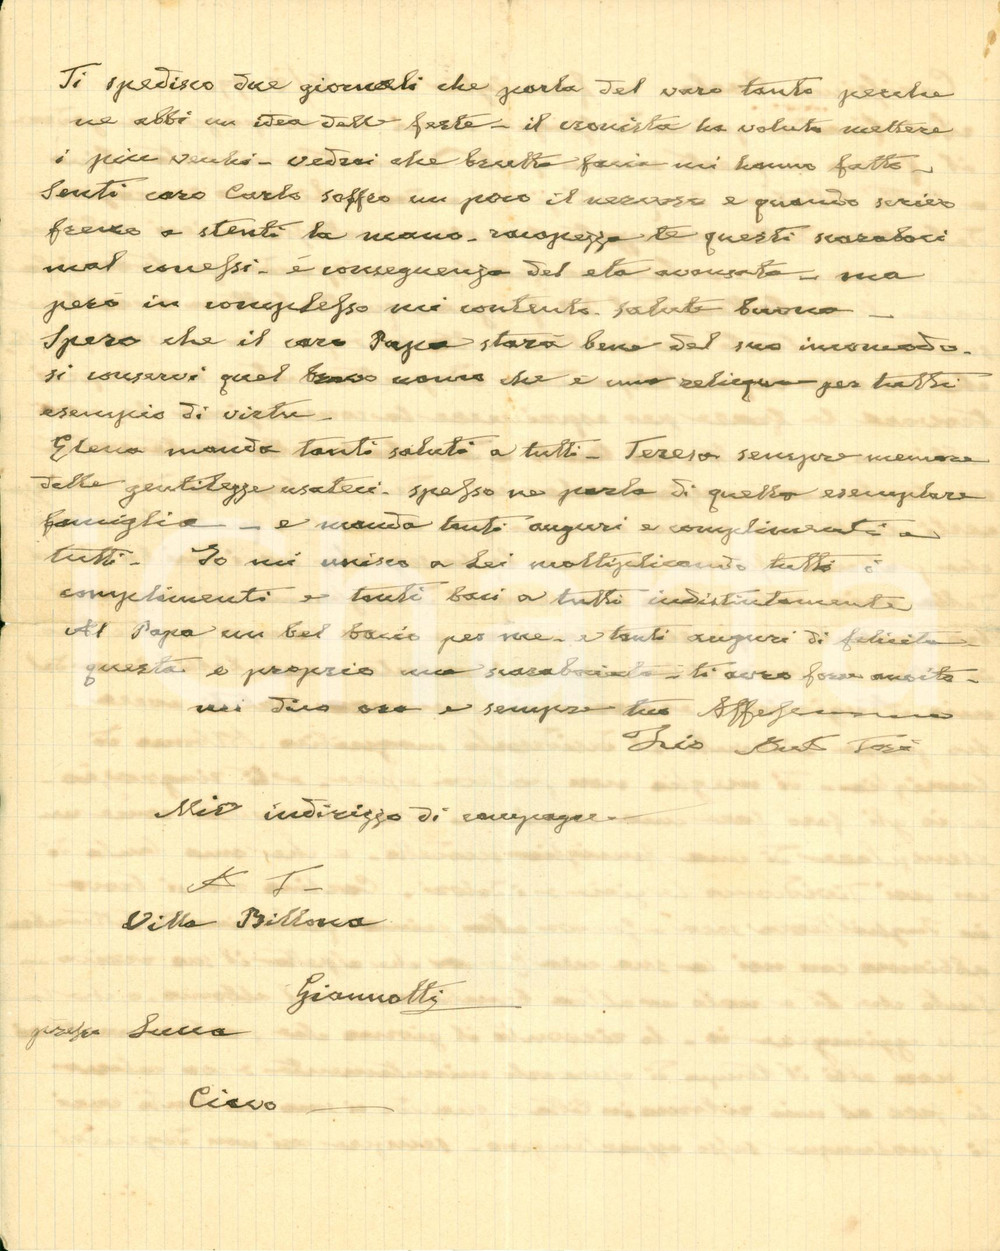 Ti spedisco due giornali che parla del varo tanto perche
ne abbi un idea dell feste - il cronista ha voluto mettere
i piu vecchi - vedrai che brutta facia mi hanno fatto -
Senti caro Carlo soffro un poco il nervoso e quando scrivo
freno a stenti la mano - racapezza te questi scaraboci
mal conessi - é conseguenza del età avansata - ma
però in complesso mi contento - salute buona -
Spero che il caro Papa starà bene del suo incomodo -
si conservi quel bravo uomo che e una reliqua per tutti
esempio di virtu -
Elena manda tanti saluti a tutti - Teresa sempre memore
delle gentilezze usateci - spesso ne parla di quella esemplare
famiglia - e manda tanti auguri e complimenti a
tutti - Io mi unisco a Lei moltiplicando tutti i
complimenti e tanti baci a tutti indistintamente
Al Papa un bel bacio per me - e tanti auguri di felicita -
questa e proprio una scarabociata - ti avro forse anoito -
mi dico ora e sempre tuo Affessmmo
Zio
Mio indirizzo di campagna -
A T -
Villa Billona
Giannotti
presso Lucca
Ciavo